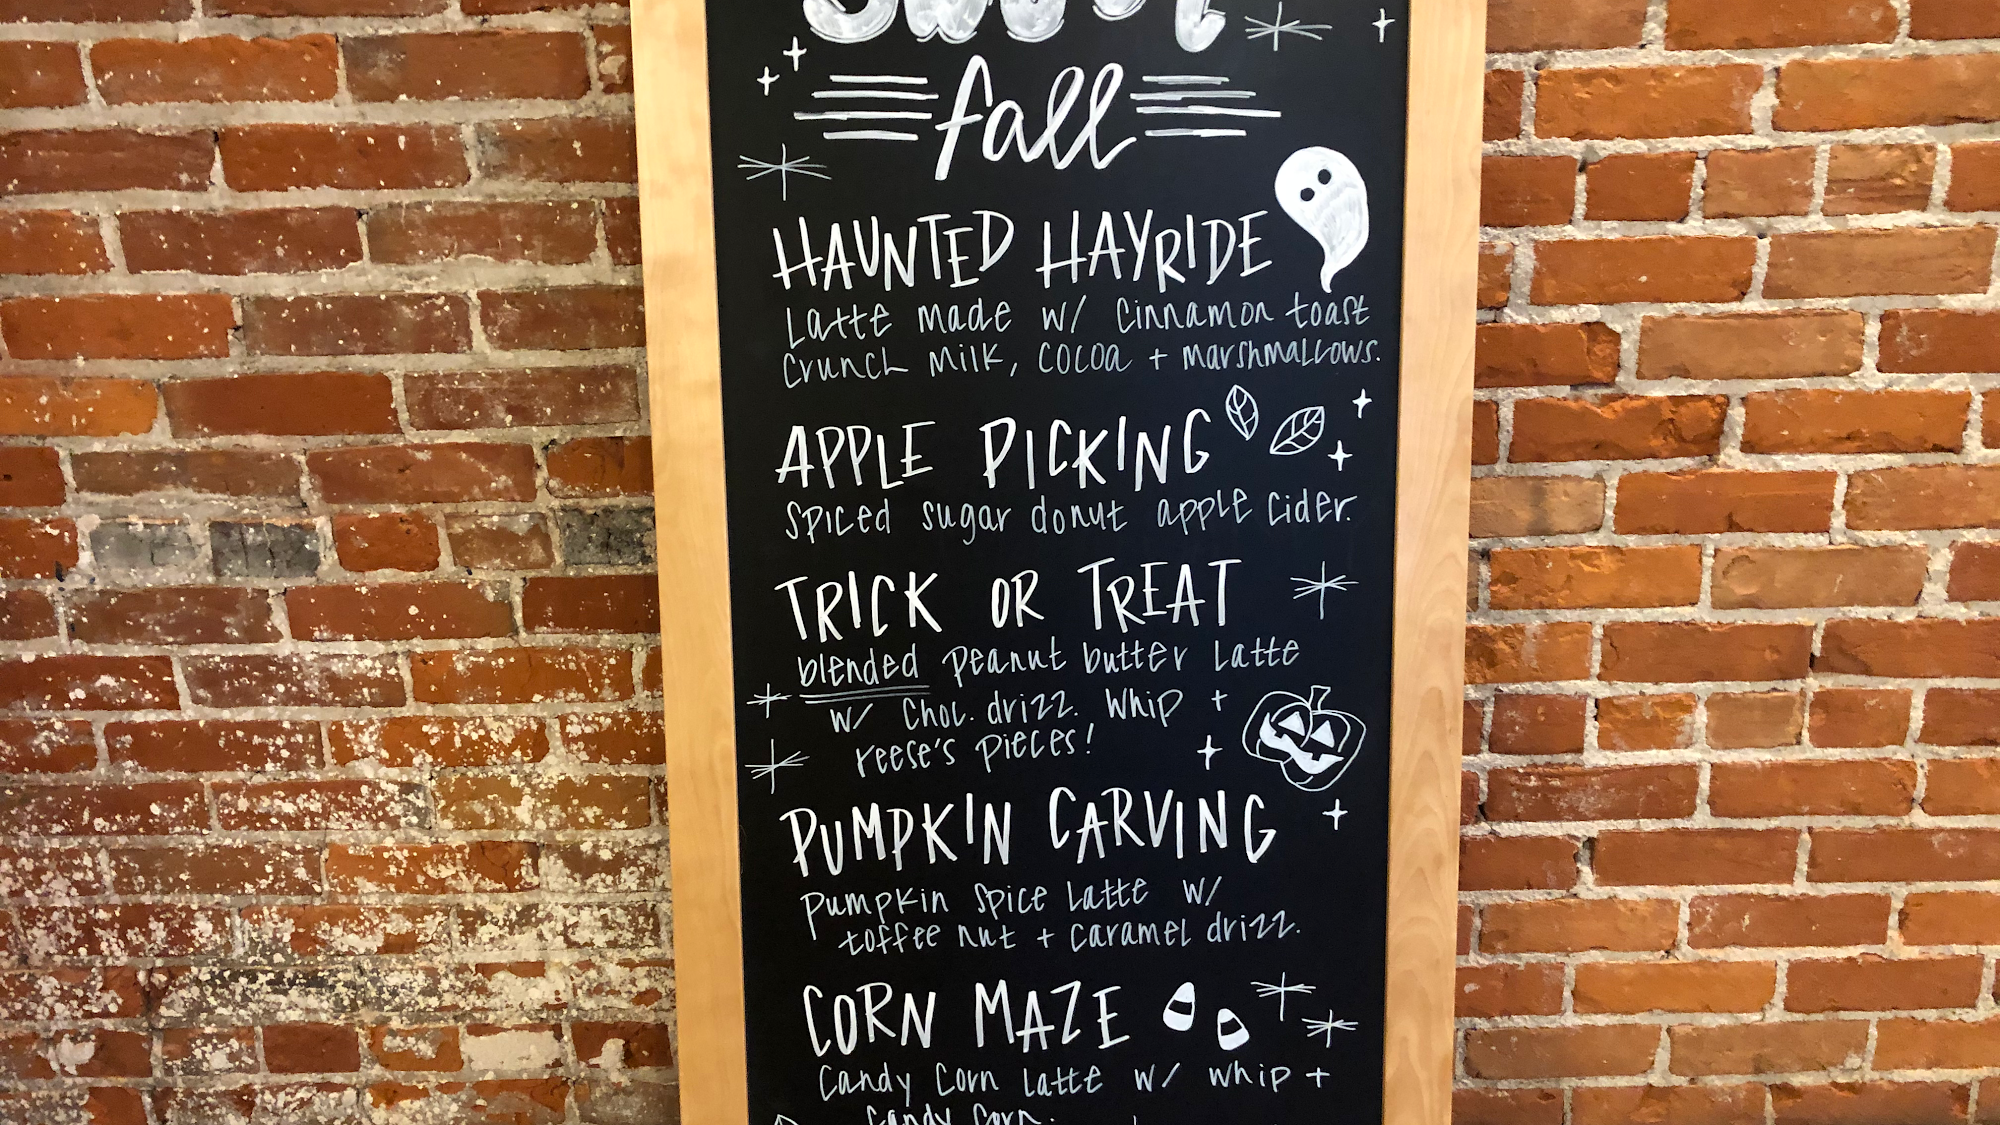 fall
HAUNTED HAYRIDE
Latte made w/ cinnamon toast
crunch milk, cocoa + marshmallows.
APPLE PICKING
spiced sugar donut apple cider.
TRICK OR TREAT
blended peanut butter latte
w/ choc. drizz. whip +
reese's pieces!
PUMPKIN CARVING
pumpkin spice latte w/
toffee nut + caramel drizz.
CORN MAZE
candy corn latte w/ whip +
candy corn.